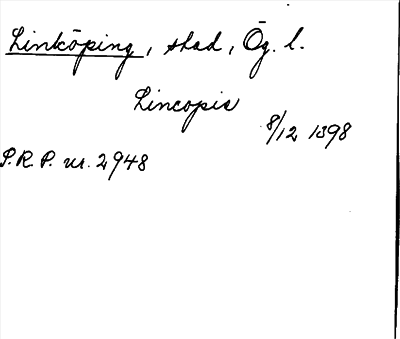 Linköping, stad, Ög. l.
Lincopis
8/12 1398
P.R.P. nr. 2948